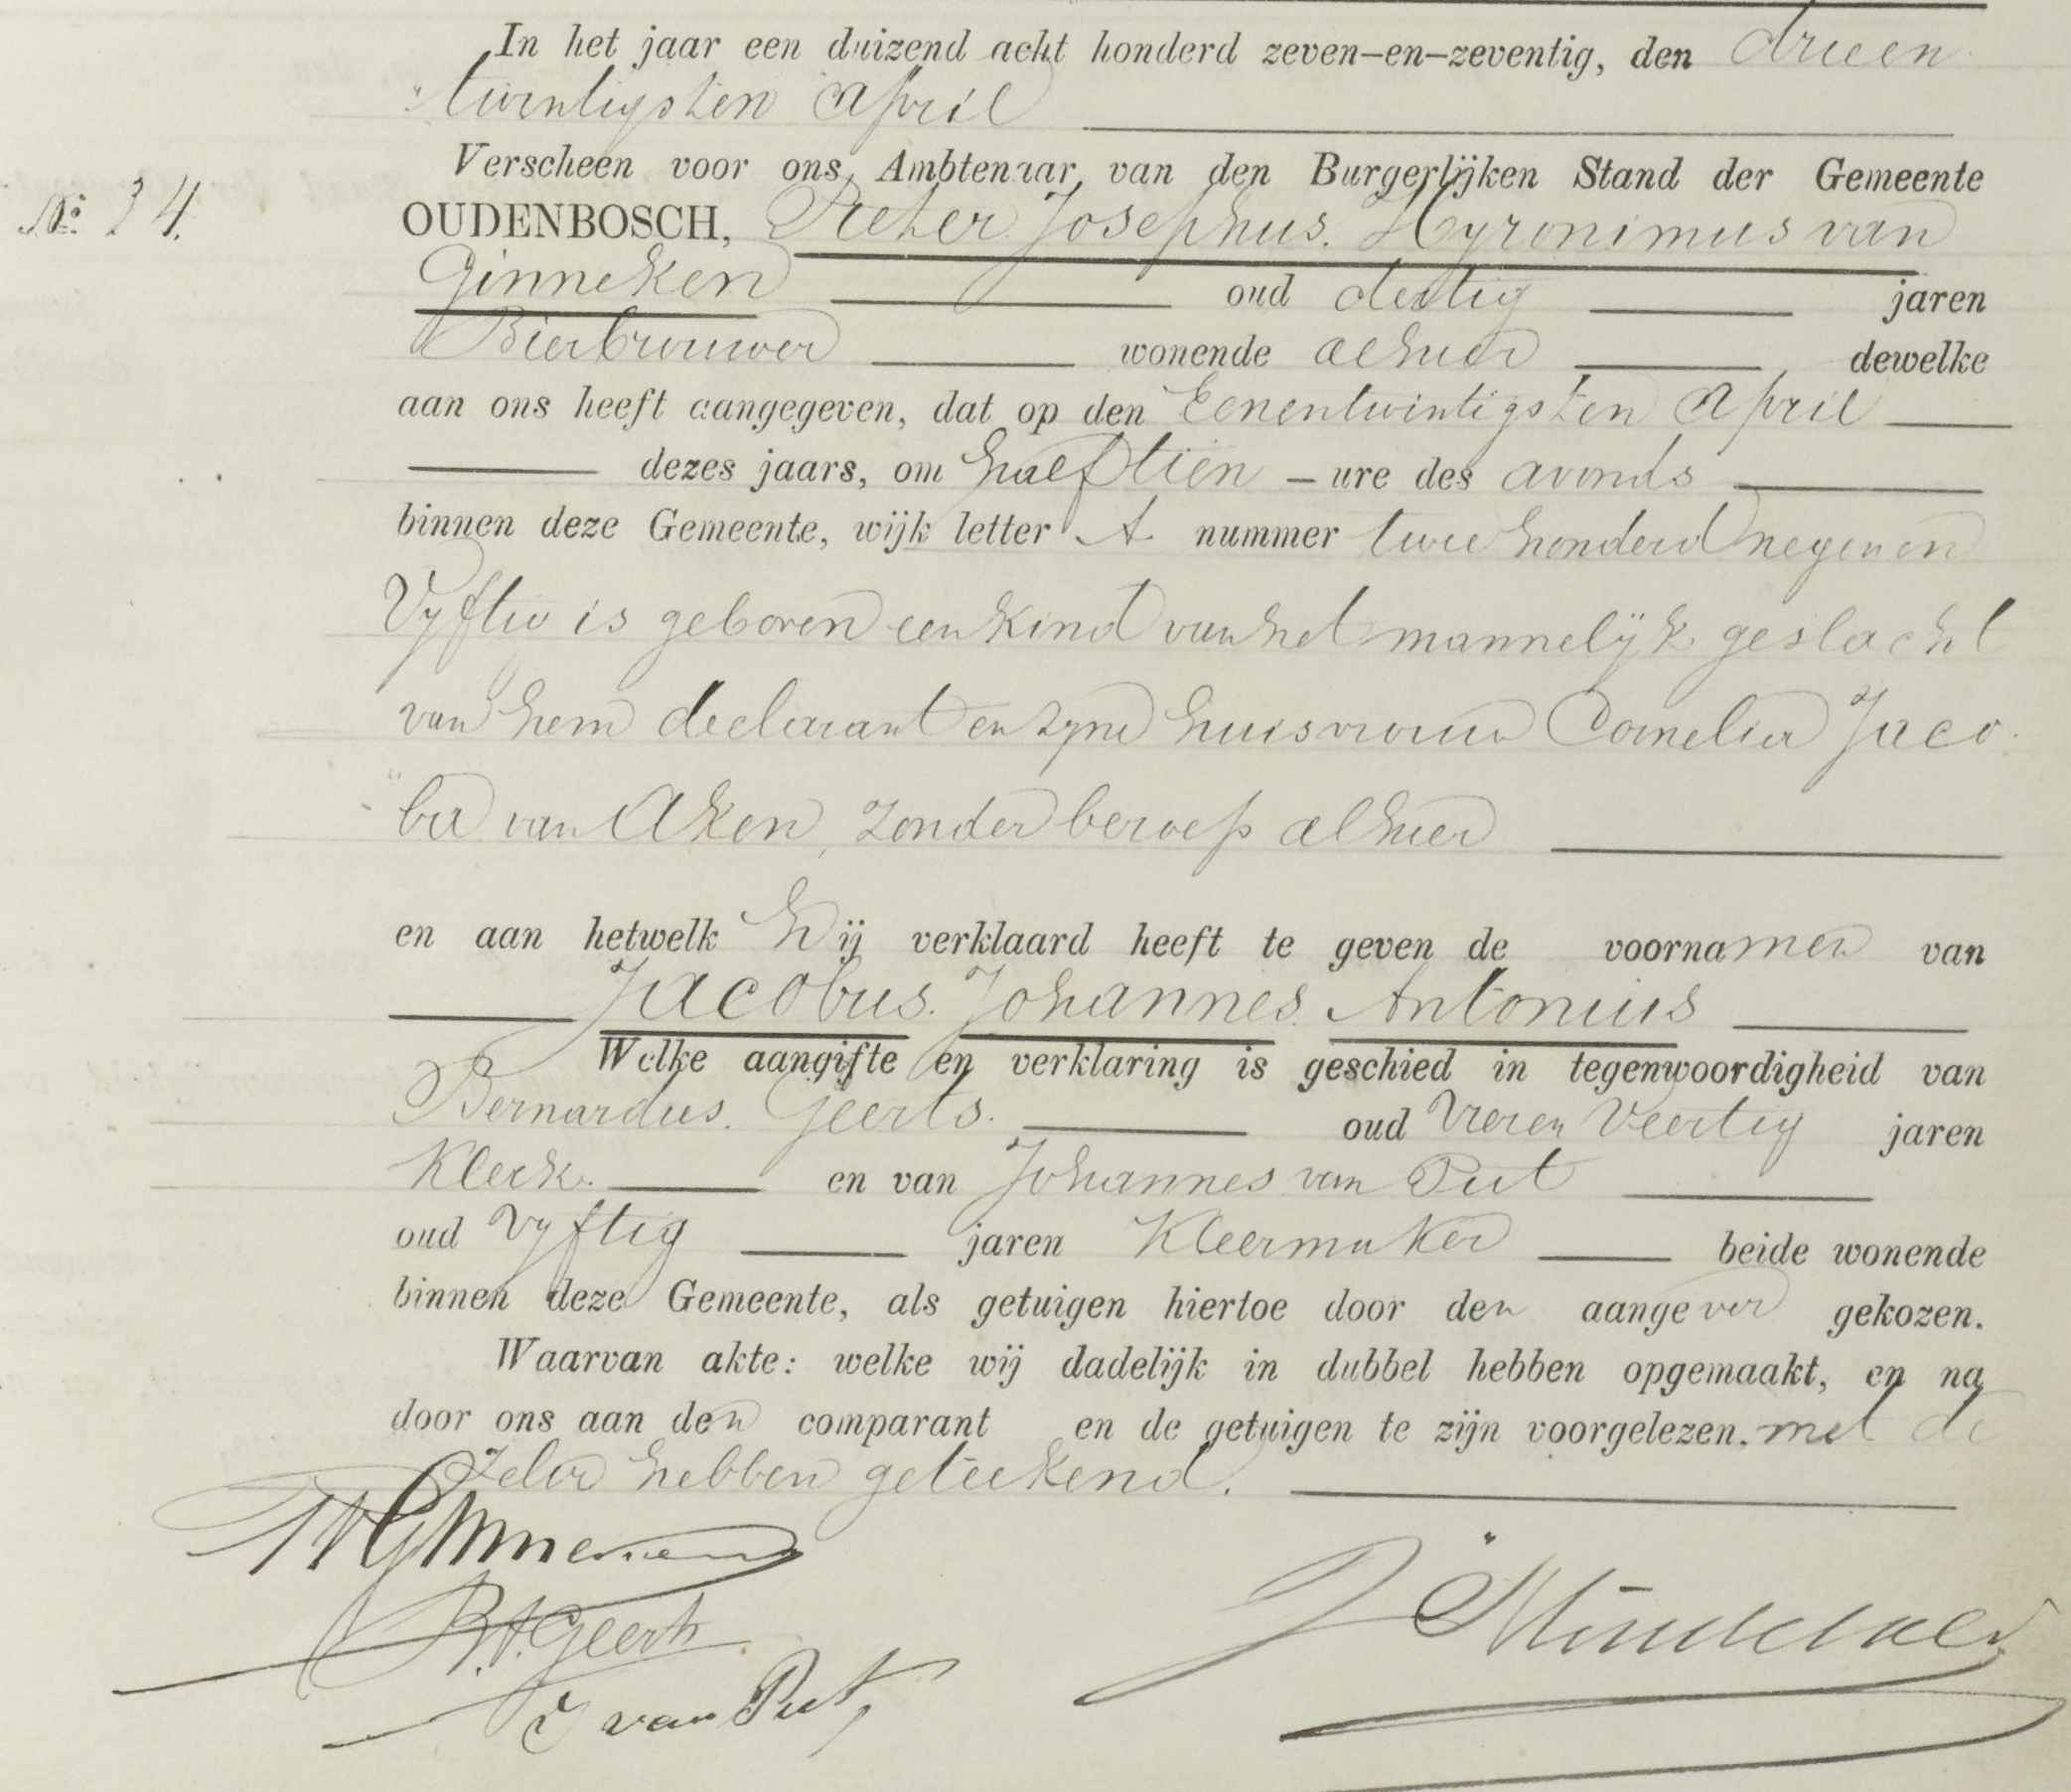 In het jaar een duizend acht honderd zeven-en-zeventig, den drieen
"twintigsten April
Verscheen voor ons Ambtenaar van den Burgerlijken Stand der Gemeente
No: 34.
OUDENBOSCH, Pieter Josephus. Hyronimus van
Ginneken oud dertig jaren
Bierbrouwer wonende alhier dewelke
aan ons heeft aangegeven, dat op den Eenentwintigsten April
dezes jaars, om half tien - ure des avonds
binnen deze Gemeente, wijk letter A nummer twee honderd negen en
Vyftig is geboren een kind van het mannelijk geslacht
van hem declarant en zyne huisvrouw Cornelia Jaco
"ba van Aken, zonder beroep alhier
en aan hetwelk Hij verklaard heeft te geven de voornamen van
Jacobus. Johannes. Antonius
Welke aangifte en verklaring is geschied in tegenwoordigheid van
Bernardus. Geerts. oud Vieren Veertig jaren
Klerk. en van Johannes van Put
oud Vyftig jaren Kleermaker beide wonende
binnen deze Gemeente, als getuigen hiertoe door den aangever gekozen.
Waarvan akte: welke wij dadelijk in dubbel hebben opgemaakt, en na
door ons aan den comparant en de getuigen te zijn voorgelezen. met de
Zelve hebben geteekend.
B.A. Geerts
J van Put,